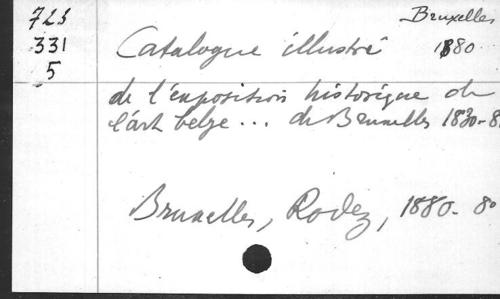 723
331
5
Bruxelles
1880
Catalogue illustré
de l'exposition historique de
l'art belge... de Bruxelles 1830-8
Bruxelles, Rodez, 1880. 8o